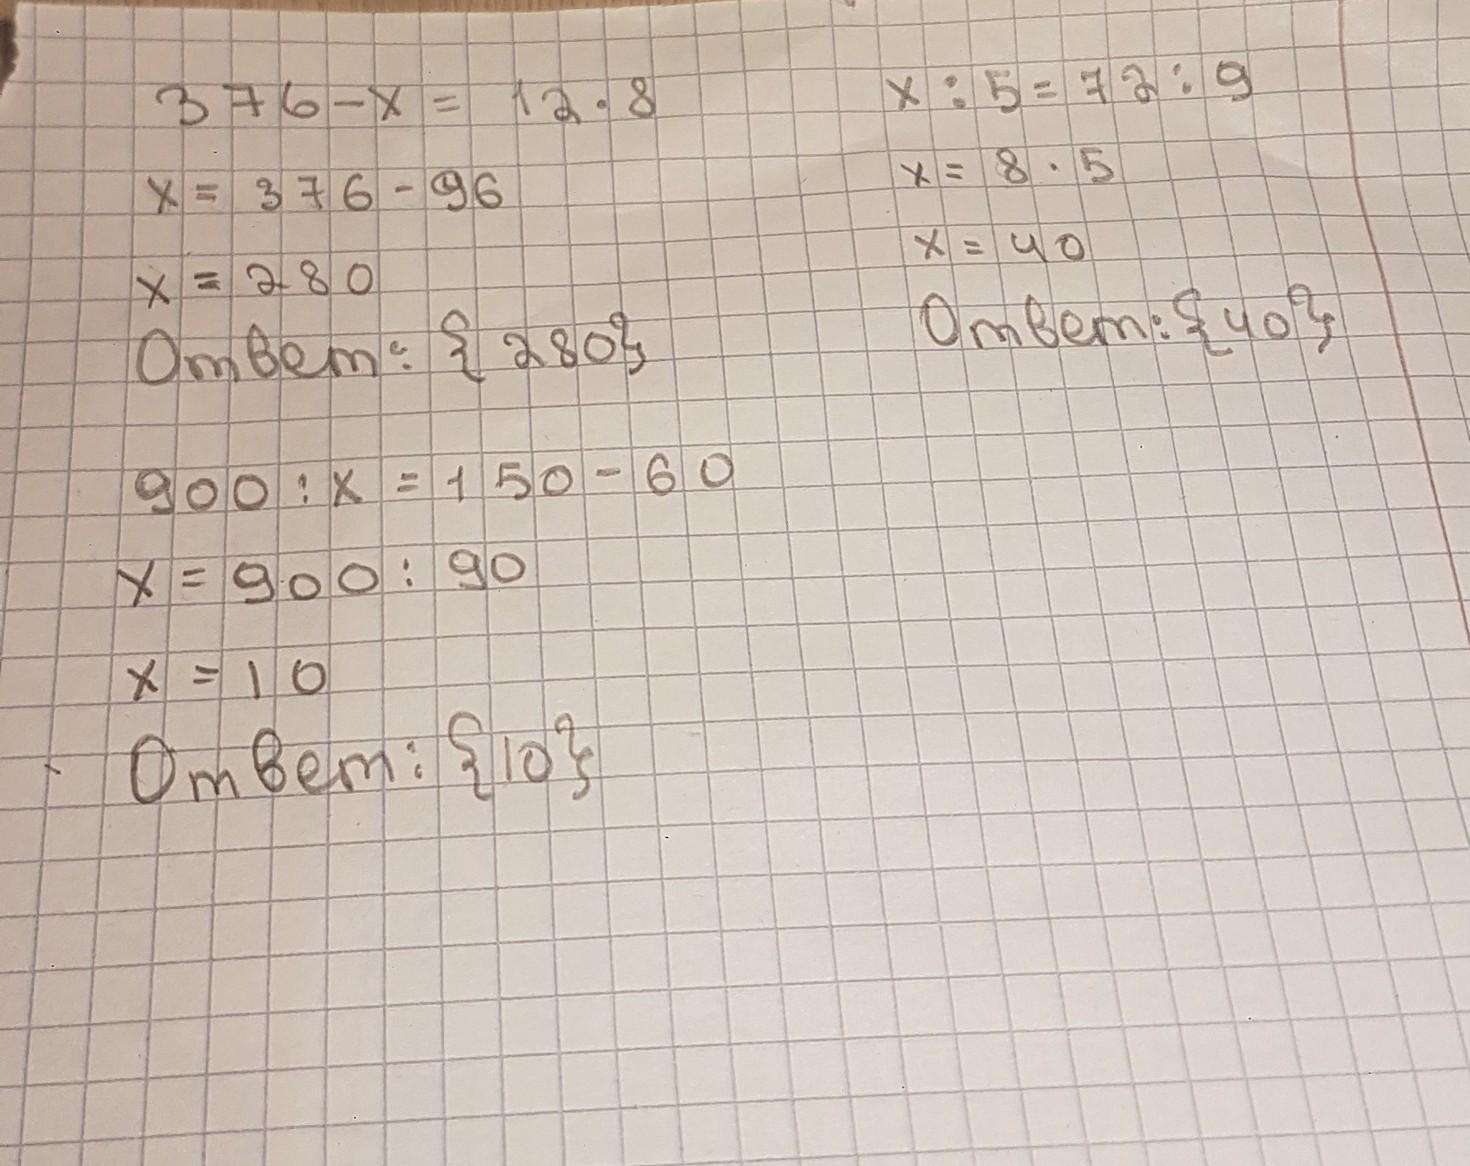 376-x= 12·8
x= 376-96
x=280
Ответ: {280}
x:5=72:9
x= 8·5
x=40
Ответ: {40}
900:x=150-60
x=900:90
x=10
Ответ: {10}